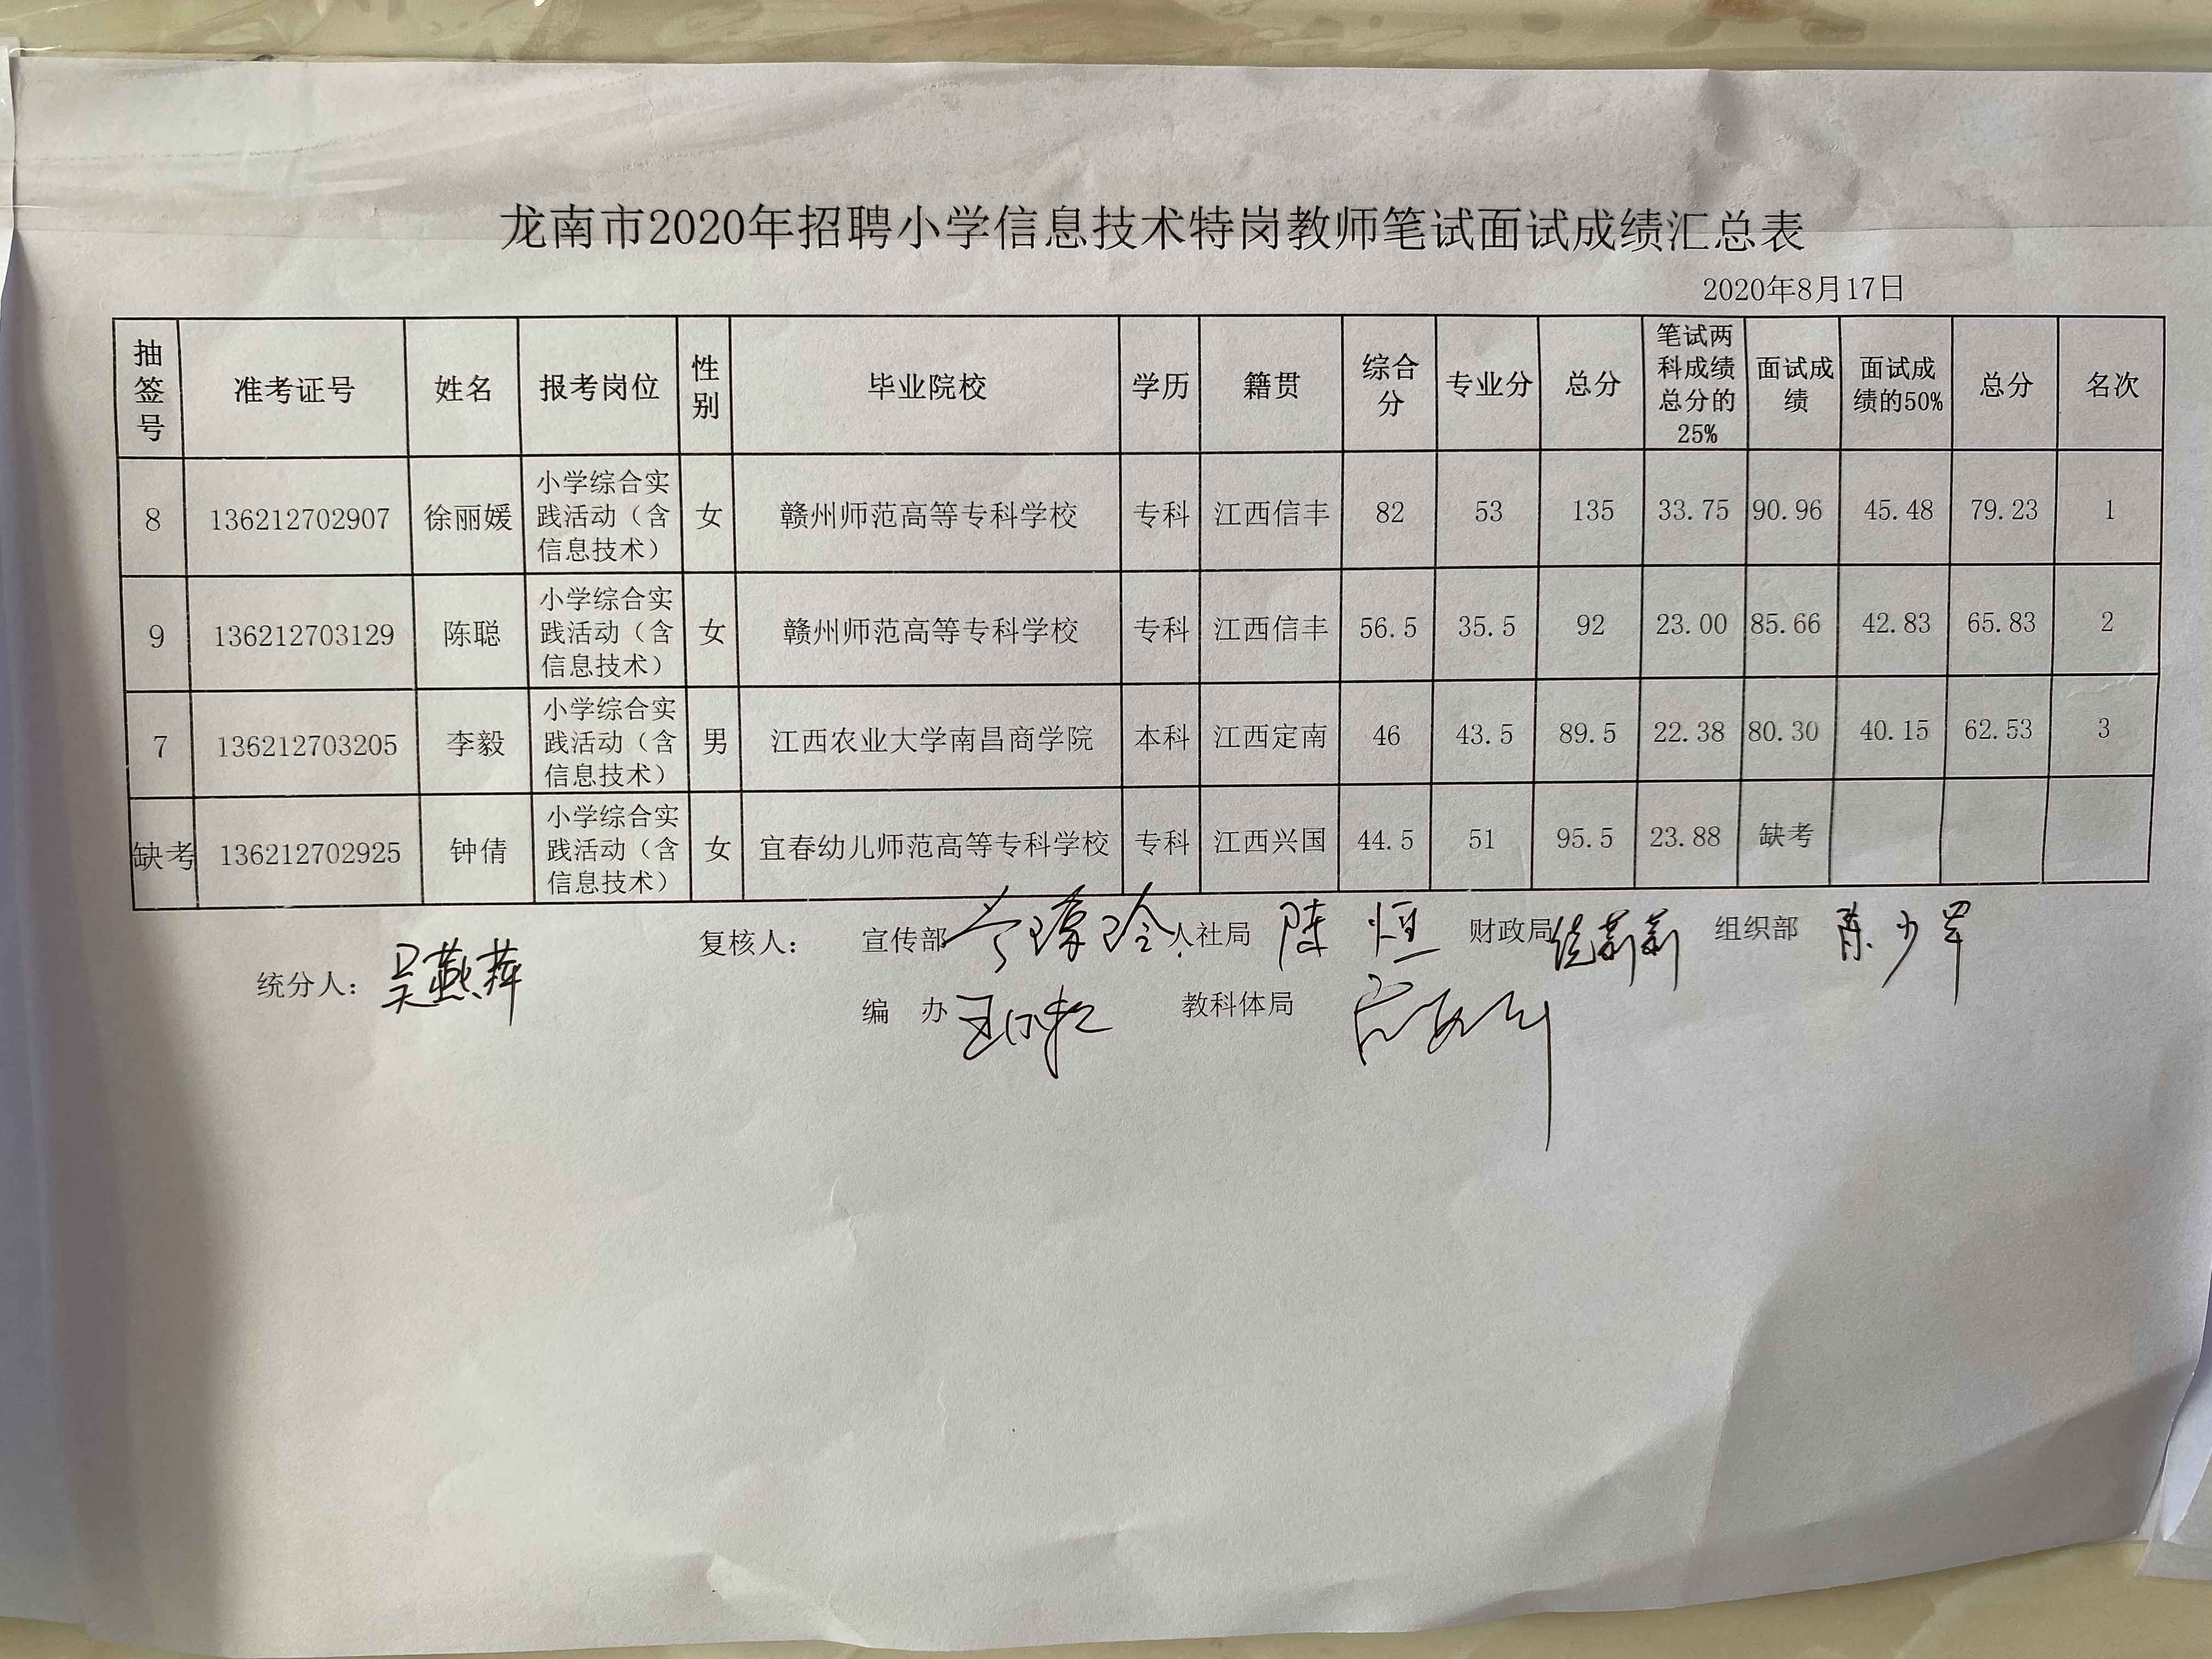 龙南市2020年招聘小学信息技术特岗教师笔试面试成绩汇总表
2020年8月17日
抽签号 准考证号 姓名 报考岗位 性别 毕业院校 学历 籍贯 综合分 专业分 总分 笔试两科成绩总分的25% 面试成绩 面试成绩的50% 总分 名次
8 136212702907 徐丽媛 小学综合实践活动（含信息技术） 女 赣州师范高等专科学校 专科 江西信丰 82 53 135 33.75 90.96 45.48 79.23 1
9 136212703129 陈聪 小学综合实践活动（含信息技术） 女 赣州师范高等专科学校 专科 江西信丰 56.5 35.5 92 23.00 85.66 42.83 65.83 2
7 136212703205 李毅 小学综合实践活动（含信息技术） 男 江西农业大学南昌商学院 本科 江西定南 46 43.5 89.5 22.38 80.30 40.15 62.53 3
缺考 136212702925 钟倩 小学综合实践活动（含信息技术） 女 宜春幼儿师范高等专科学校 专科 江西兴国 44.5 51 95.5 23.88 缺考
统分人： 吴燕萍 复核人： 宣传部 人社局 陈恒 财政局 组织部
编 办 教科体局